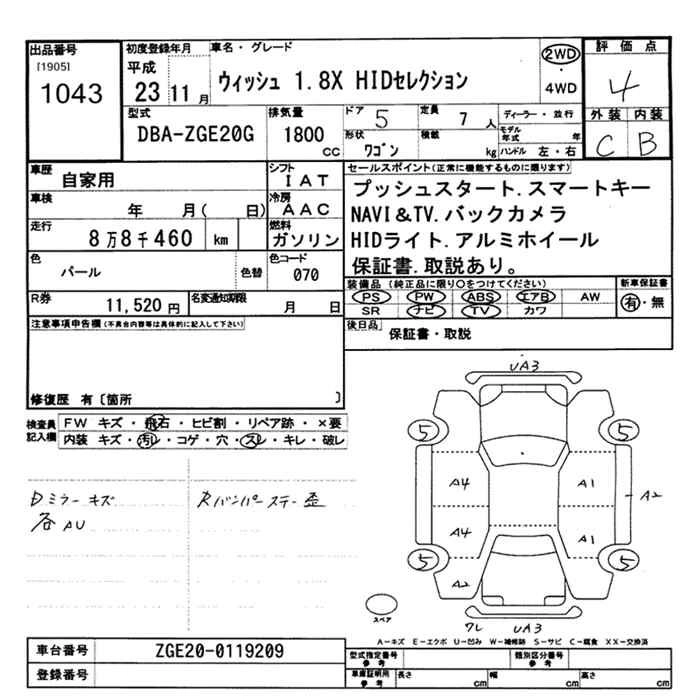 出品番号 [1905] 1043
初度登録年月 平成 23 11 月
車名・グレード ウィッシュ 1.8X HIDセレクション
2WD ・ 4WD
評価点 4
外装 内装
C B
型式 DBA-ZGE20G
排気量 1800 cc
ドア 5
定員 7 人
ディーラー・並行
形状 ワゴン
積載 kg
モデル年式 年
ハンドル 左・右
車歴 自家用
シフト IAT
車検 年 月( 日)
冷房 AAC
走行 8万8千460 km
燃料 ガソリン
色 パール 色替
色コード 070
R券 11,520 円
名変通知期限 月 日
セールスポイント(正常に機能するものに限ります)
プッシュスタート.スマートキー
NAVI&TV.バックカメラ
HIDライト.アルミホイール
保証書.取説あり。
装備品 (純正品に限り○をつけてください) 新車保証書
PS PW ABS エアB AW 有・無
SR ナビ TV カワ
後日品 保証書・取説
注意事項申告欄(不具合内容等は具体的に記入して下さい)
修復歴 有〔箇所 〕
検査員記入欄
FW キズ・飛石・ヒビ割・リペア跡・×要
内装 キズ・汚れ・コゲ・穴・スレ・キレ・破レ
Dミラーキズ
各AU
Rバンパーステー歪
UA3
5 5
A4 A1
A2
A4 A1
5 5
A2
スペア
ワレ UA3
A－キズ E－エクボ U－凹み W－補修跡 S－サビ C－腐食 XX－交換済
車台番号 ZGE20-0119209
登録番号
型式指定番号 参考 類別区分番号 参考
車庫証明用 参考 長さ cm 幅 cm 高さ cm